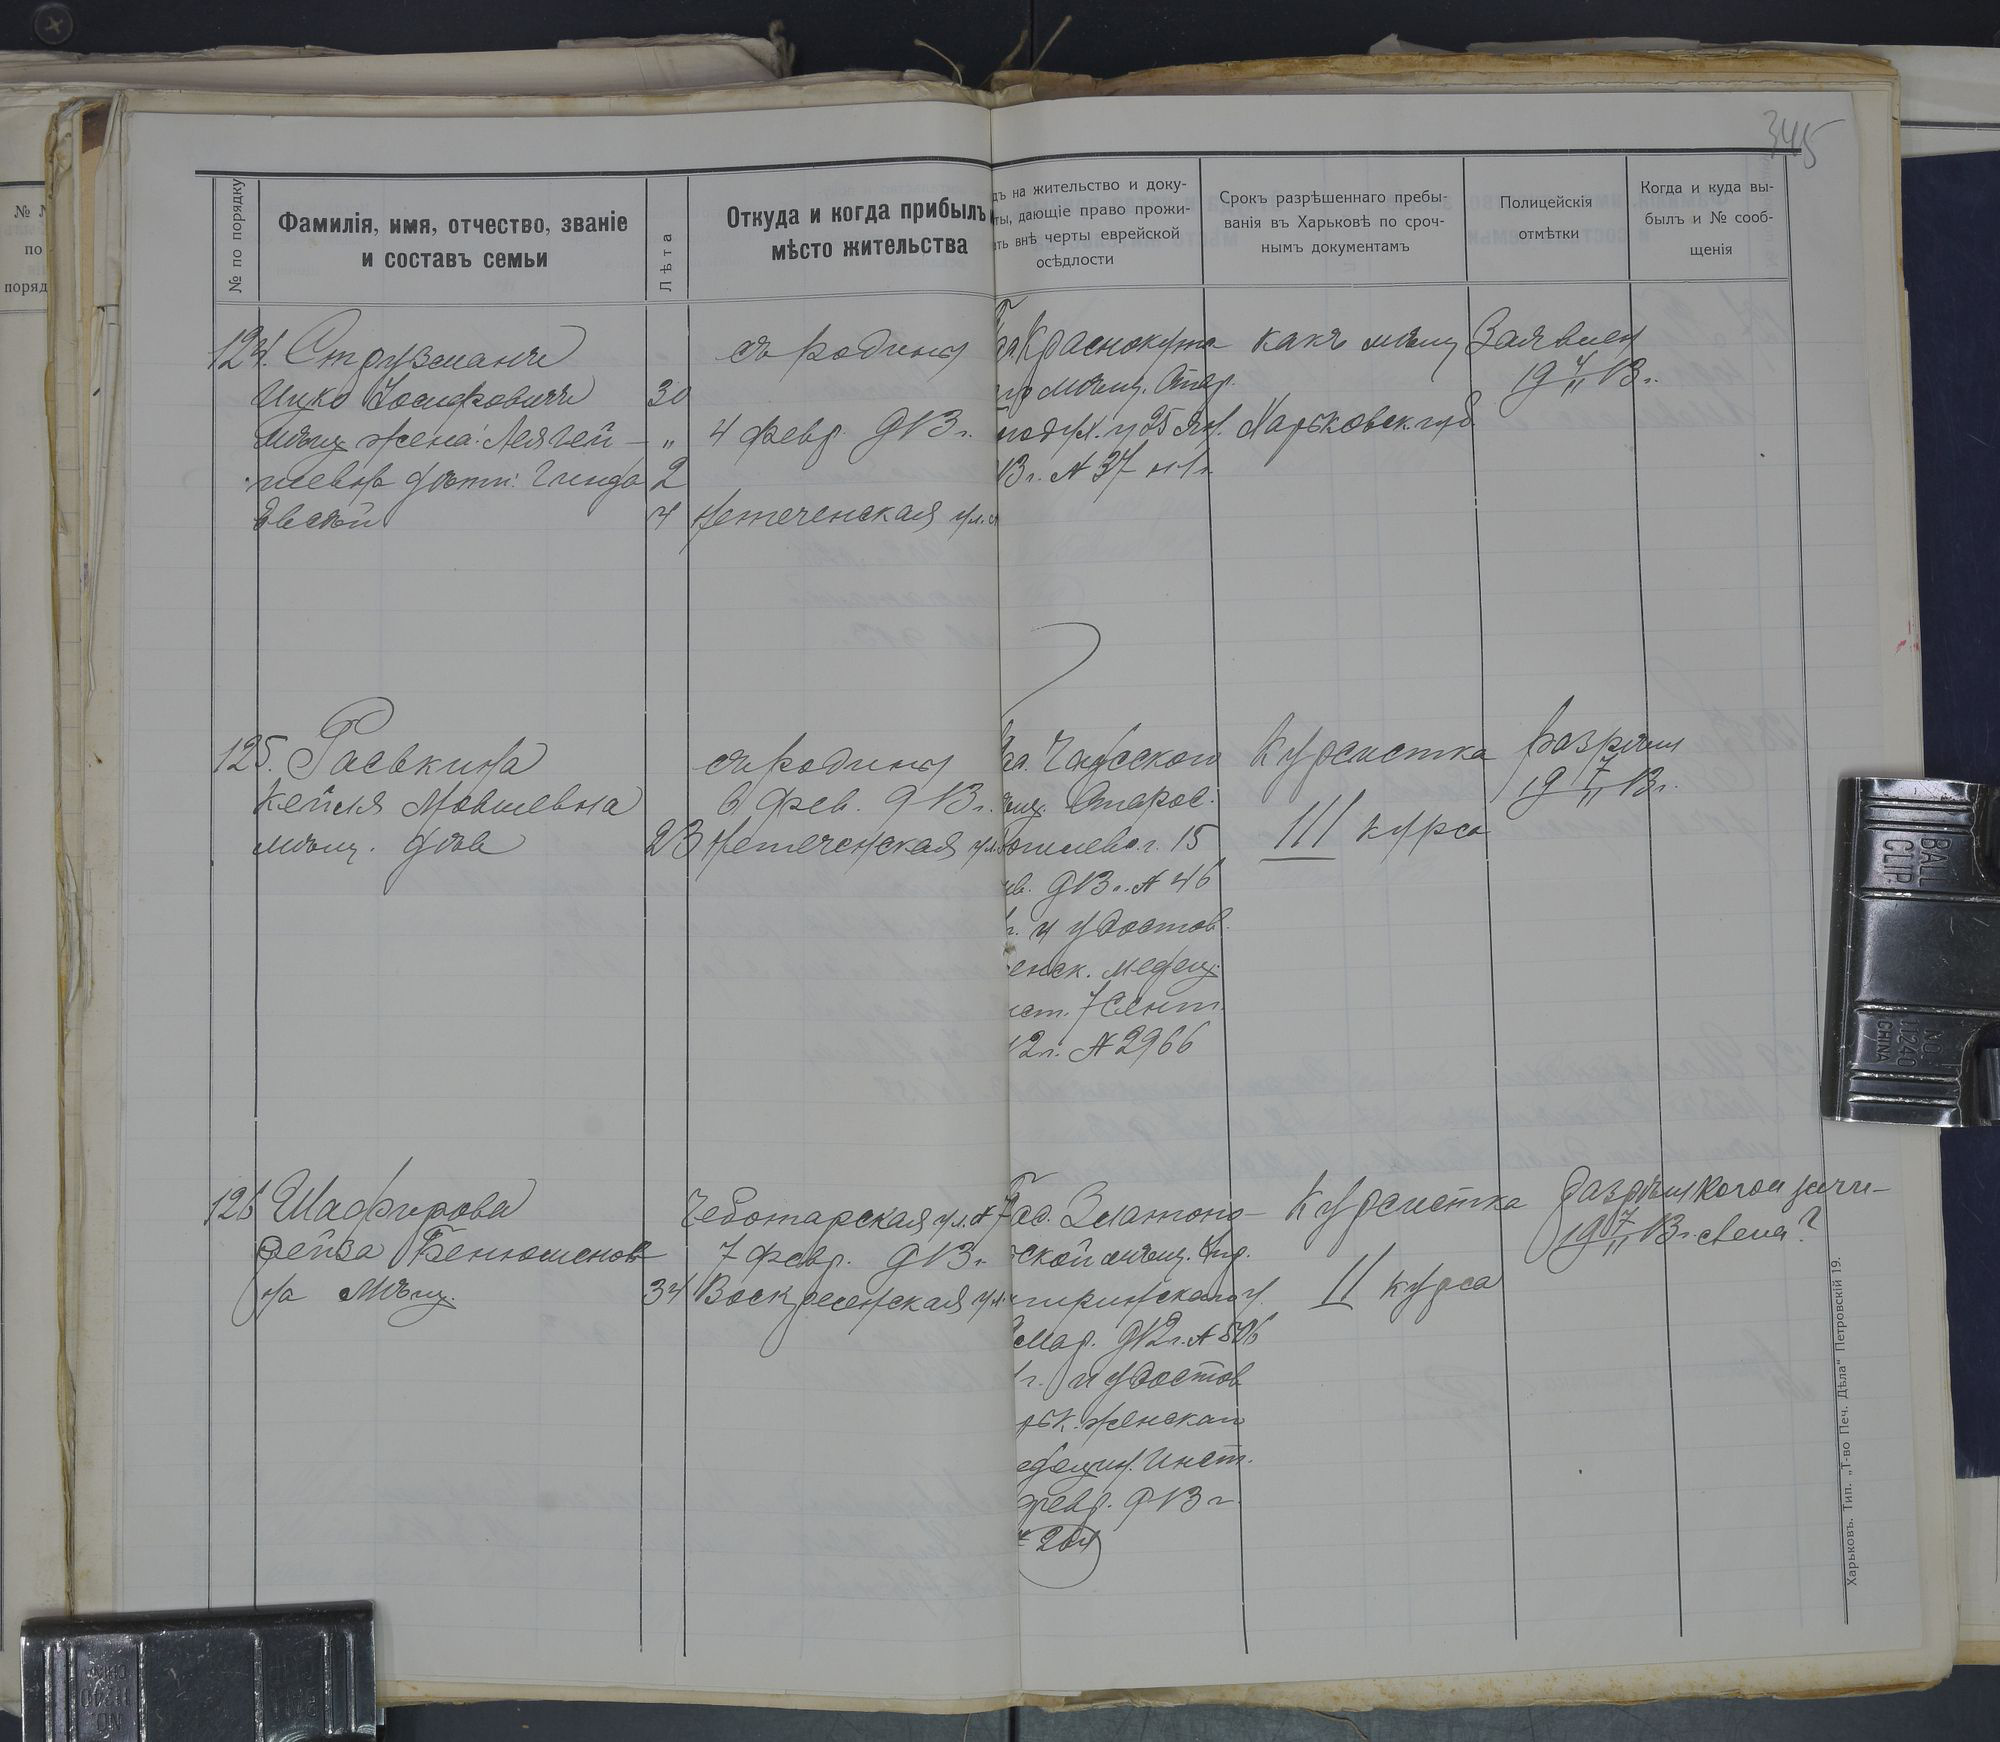 345
№ по порядку
Фамилія, имя, отчество, званіе
и составъ семьи
Лѣта
Откуда и когда прибылъ и
мѣсто жительства
дъ на жительство и доку-
ты, дающіе право прожи-
ать внѣ черты еврейской
осѣдлости
Срокъ разрѣшеннаго пребы-
ванія въ Харьковѣ по сроч-
нымъ документамъ
Полицейскія
отмѣтки
Когда и куда вы-
былъ и № сооб-
щенія
124. Струзманъ
Ицко Іосифовичъ 30
Мѣщ. жена: Лея Гей- "
шевна дѣти: Гинда 2
Евсѣй 4
съ родины
4 февр. 913 г.
Нетеченская ул.
Краснокутс
мѣщ. Стар.
25 Янв.
13 г. № 37
какъ мѣщ.
Харьковск. губ
Заявлен
19 7/II 13 г.
125. Раськина
Кейля Мовшевна
мѣщ. дѣв 23
съ родины
6 фев. 913 г.
Нетеченская ул.
Чаусского
мѣщ. Старос.
15
913 г. № 46
и удостов.
енск. медец.
7 Сент.
12 г. № 2966
Курсистка
III курса
Разрѣш
19 7/II 13 г.
126 Шафирова
Рейза Бенюминов-
на Мѣщ. 34
Чеботарская ул. № 7
7 февр. 913 г.
Воскресенская ул.
Златопо-
ской мѣщ. Упр.
гиринскаго у.
мар. 912 г. № 506
г. и удостов
рьк. Женскаго
едецин. Инст.
февр. 913 г.
№ 204
Курсистка
II курса
Разрѣш
19 7/II 13 г.
Харьковъ. Тип. „Т-во Печ. Дѣла“ Петровскій 19.
№ №
по
поряд
BALL
CLIP.
NO.
11240
CHINA